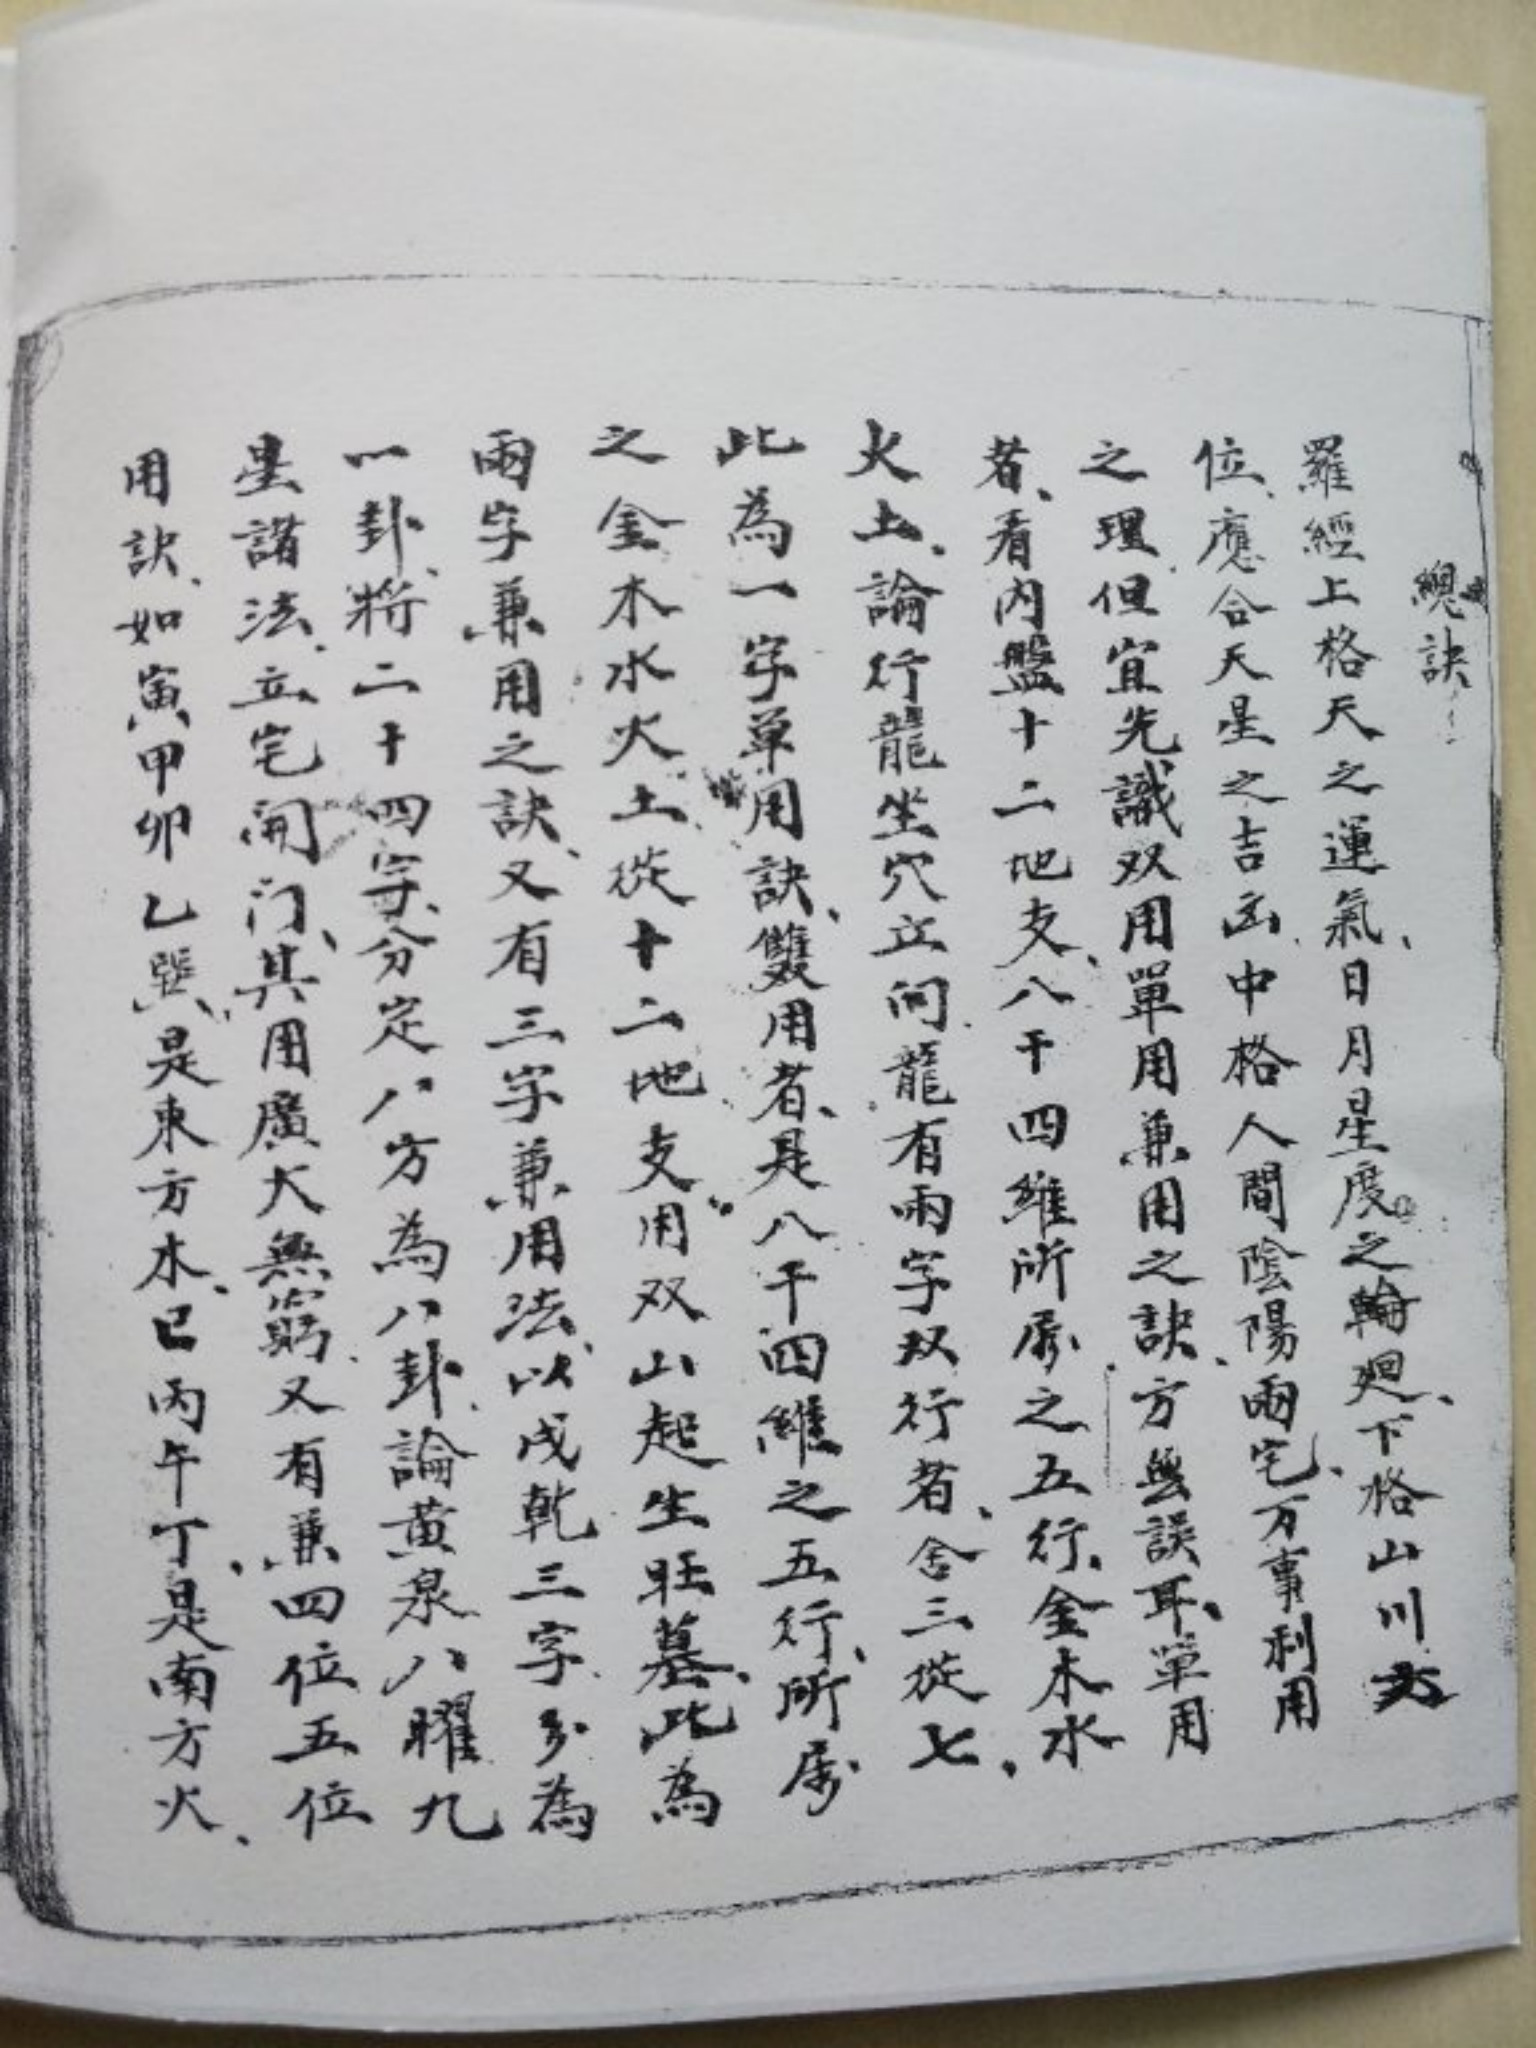 總訣
羅經上格天之運氣、日月星度之輪廻、下格山川方
位、應合天星之吉凶、中格人間陰陽兩宅、万事利用
之理、但宜先識双用單用兼用之訣、方無誤耳、單用
者、看內盤十二地支、八干四維所屬之五行、金木水
火土、論行龍坐穴立向、龍有兩字双行者、舍三從七、
此為一字單用訣、雙用者、是八干四維之五行、所屬
之金木水火土、從十二地支、用双山起生旺墓、此為
兩字兼用之訣、又有三字兼用法、以戌乾三字、分為
一卦、將二十四字、分定八方為八卦、論黃泉八曜九
星諸法、立宅開门、其用廣大無窮、又有兼四位五位
用訣、如寅甲卯乙巽、是東方木、巳丙午丁、是南方火、